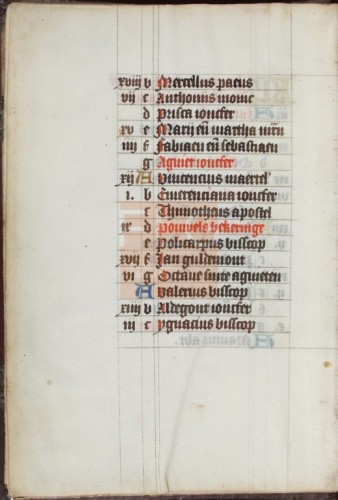 xviij b Mercellus paeus
vij c Anthonius monic
d Prisca ioncfer
xv e Marij en martha
iiij f Fabiaen en sebastiaen
g Agniet ioncfer
xij A Vincencius maertel'
i. b Emerenciana ioncfer
c Thimotheus apostel
ix d Pouwels bekeringe
e Policarpus bisscop
xvij f Jan guldemont
vi g Octave sinte agneten
A Valerius bisscop
xiiij b Aldegont ioncfer
iij c ygnacius bisscop